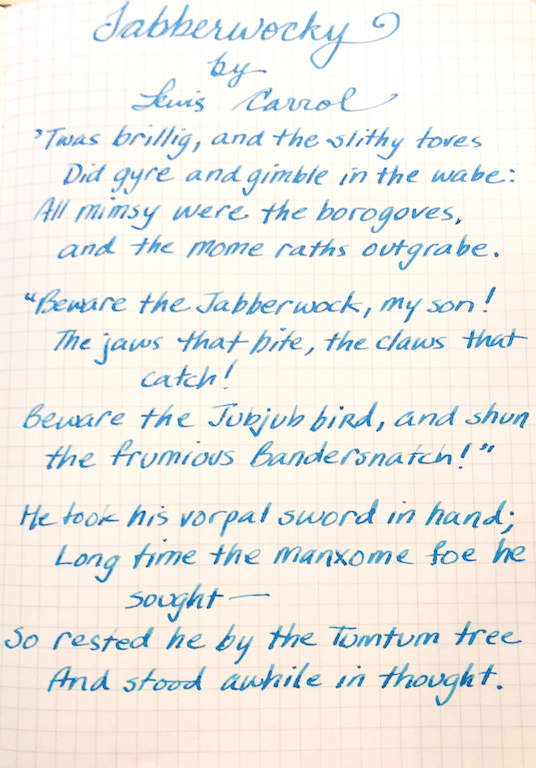 Jabberwocky
by
Lewis Carrol
'Twas brillig, and the slithy toves
Did gyre and gimble in the wabe:
All mimsy were the borogoves,
and the mome raths outgrabe.
"Beware the Jabberwock, my son!
The jaws that bite, the claws that
catch!
Beware the Jubjub bird, and shun
the frumious Bandersnatch!"
He took his vorpal sword in hand;
Long time the manxome foe he
sought—
So rested he by the Tumtum tree
And stood awhile in thought.